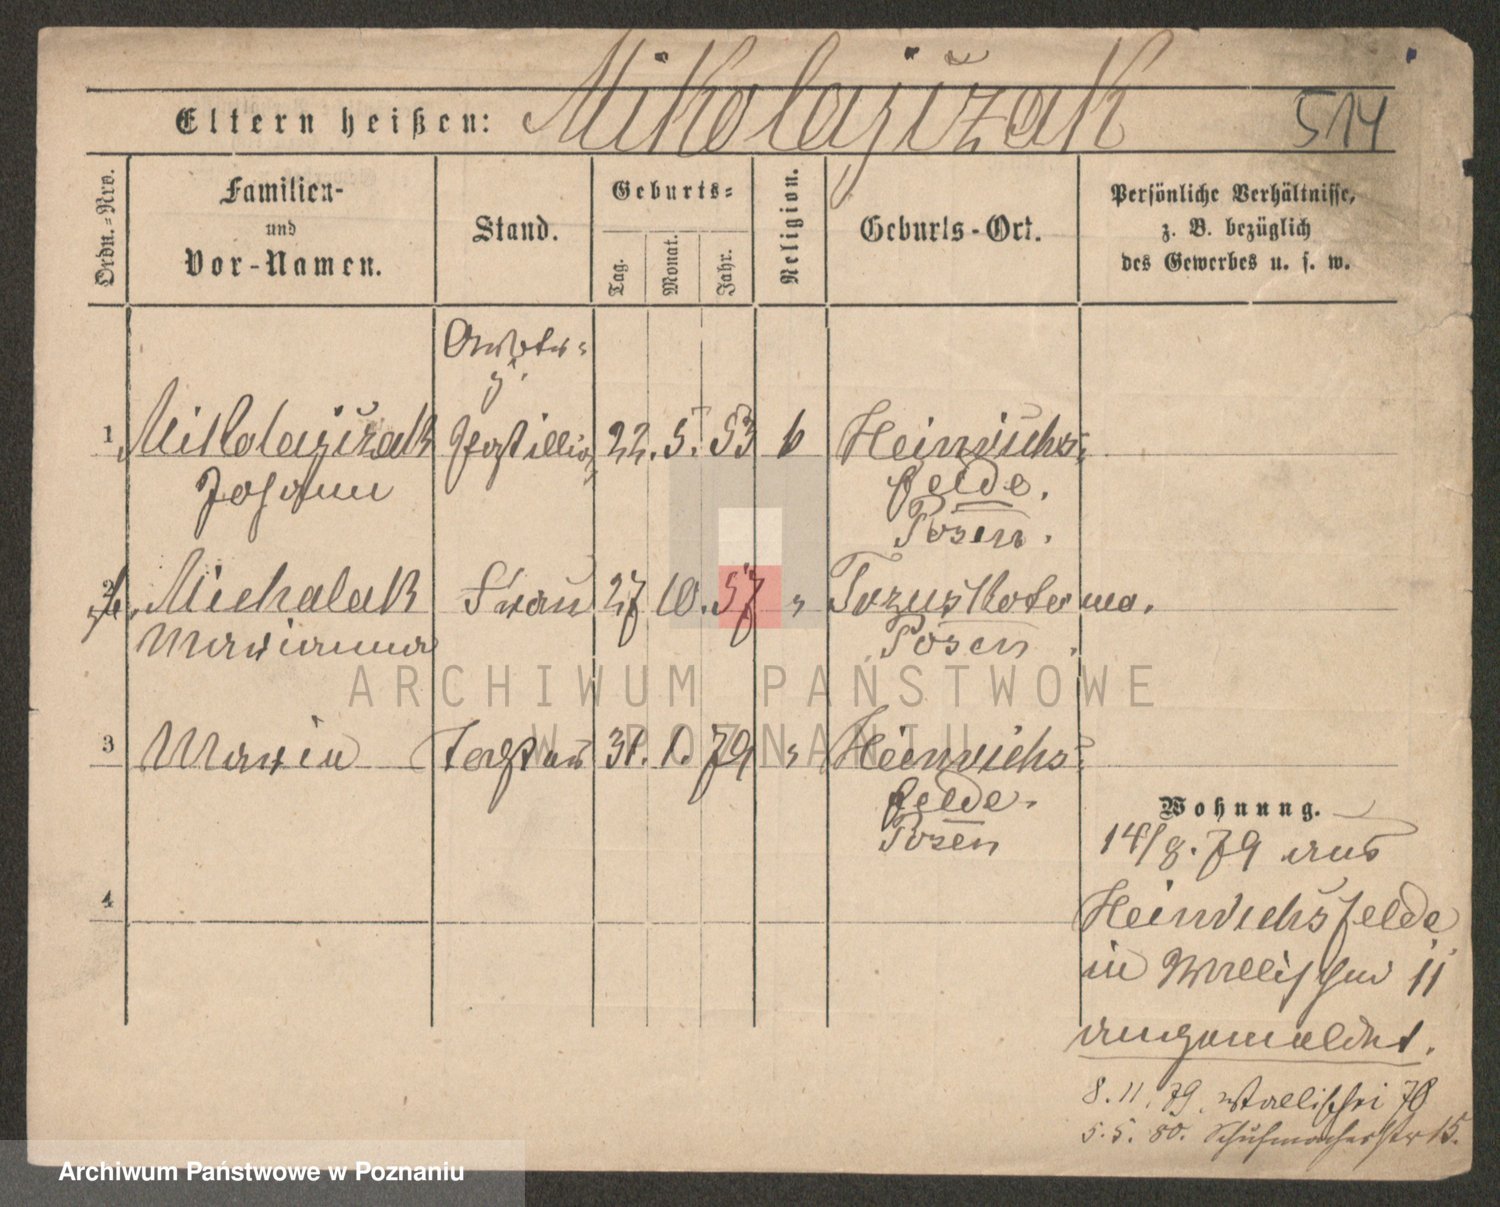 Eltern heißen: Mikolajczak 514
Ordn.-Nro.
Familien-
und
Vor-Namen.
Stand.
Geburts-
Tag.
Monat.
Jahr.
Religion.
Geburts-Ort.
Persönliche Verhältnisse,
z. B. bezüglich
des Gewerbes u. s. w.
1 Mikolajczak Postillion 22. 5. 53 k Heinrichs-
Johann felde.
Posen.
2 Michalak Frau 27 10. 57 " 
Marianna Posen.
3 Maria Tochter 31. 1. 79 " Heinrichs-
felde.
Posen
4
Wohnung.
14/8. 79 aus
Heinrichsfelde
in Wallischei 11
angemeldet.
8. 11. 79. Wallischei 78
5. 5. 80. Schuhmacherstr 15.
ARCHIWUM PAŃSTWOWE
W POZNANIU
Archiwum Państwowe w Poznaniu